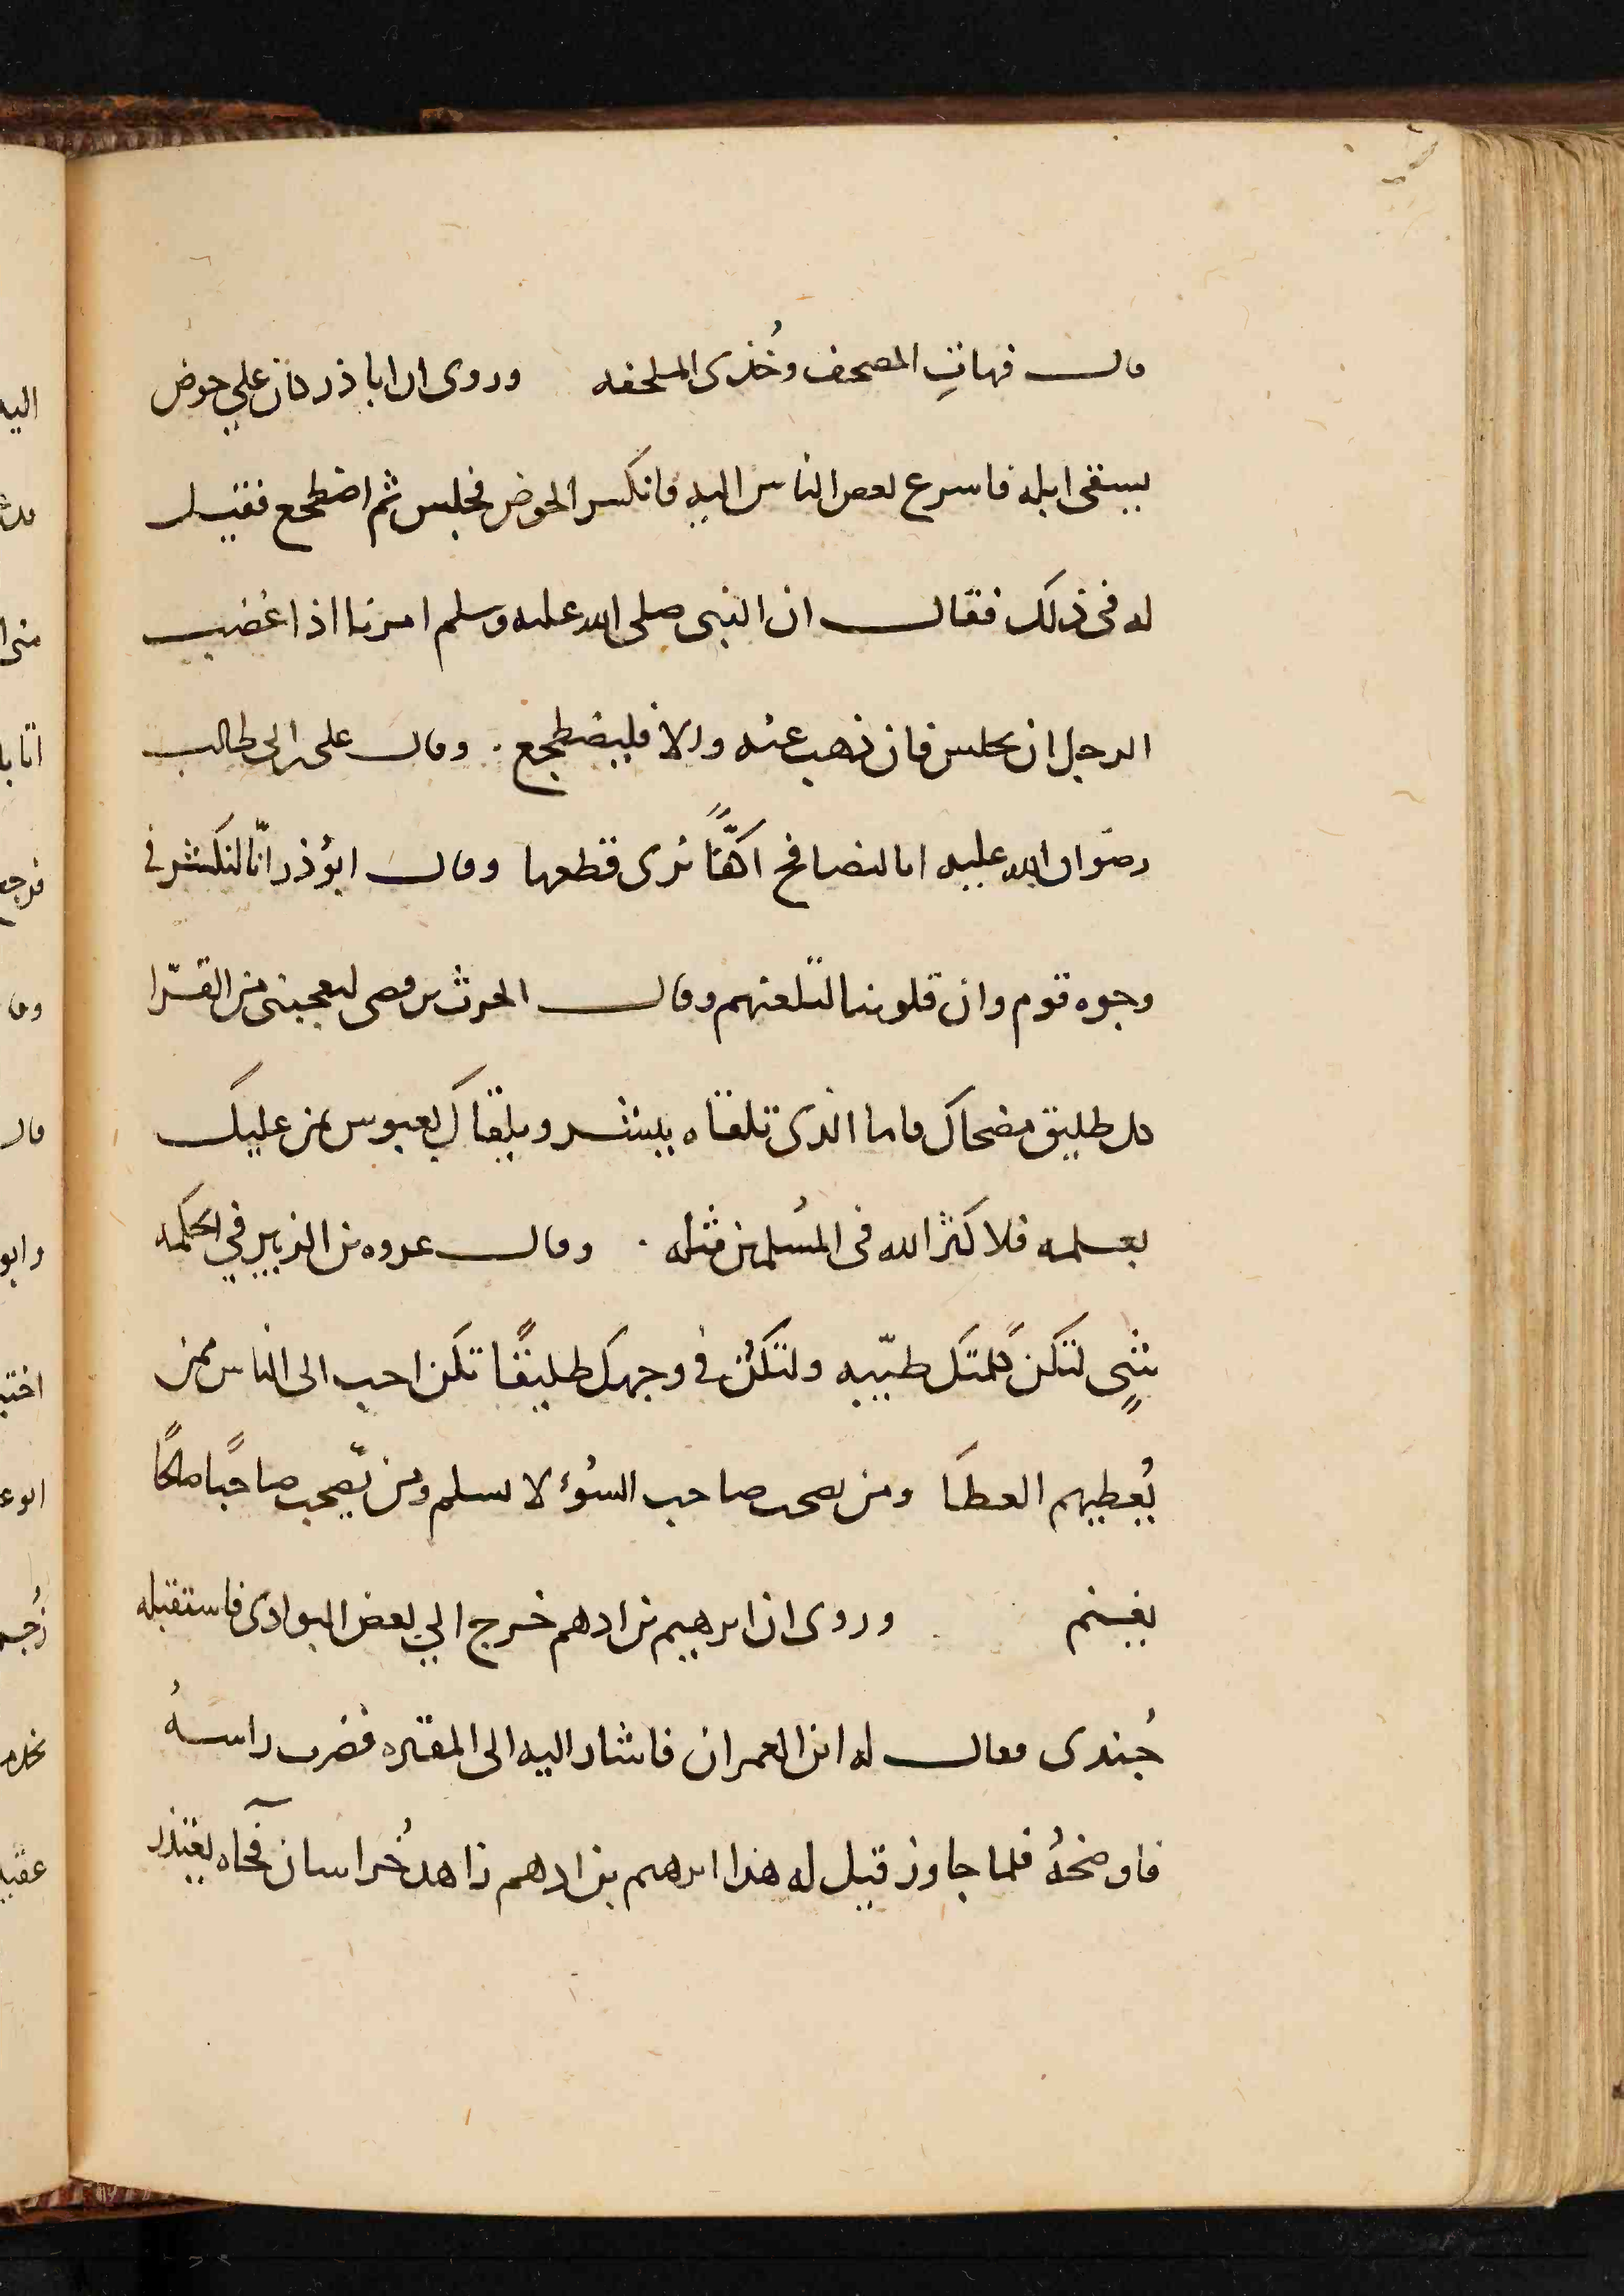 قال فهاتِ المصحف وخُذى الملحفه وروى ان اباذر كان علي حوض
يسقى ابله فاسرع بعض الناس اليه فانكسر الحوض فجلس ثم اضطجع فقيل
له فى ذلك فقال ان النبى صلى الله عليه وسلم امرنا اذا غضب
الرجل ان يجلس فان ذهب عنه والا فليضطجع . وقال على بن ابى طالب
رضوان الله عليه انا لنصافح اكفًّا نرى قطعها وقال ابوُذر انّا لنكشر فى
وجوه قوم وان قلوبنا لتلعنهم وقال الحرث بن قصى ليعجبنى من القرّا
كل طليق مضحاك فاما الذى تلقاه ببشر ويلقاك بعبوس يمن عليك
بعلمه فلا كثر الله فى المُسلمين مثله . وقال عروه بن الزبير في الحكمه
بُنَيِ لتكن كلمتك طيّبه ولتكُن فى وجهك طليقًا تكن احب الى الناس ممن
يُعطيهم العطَا ومن يصحب صاحب السُوء لا يسلم ومن يصحب صاحبًا صالحًا
يغنم وروى ان ابرهيم بن ادهم خرج الي بعض البوادى فاستقبله
جُندى فقال له اين العمران فاشار اليه الى المقبره فضرب راسهُ
فاوضحهُ فلما جاوز قيل له هذا ابرهيم بن ادهم زاهد خُراسان فجآه يعتذر